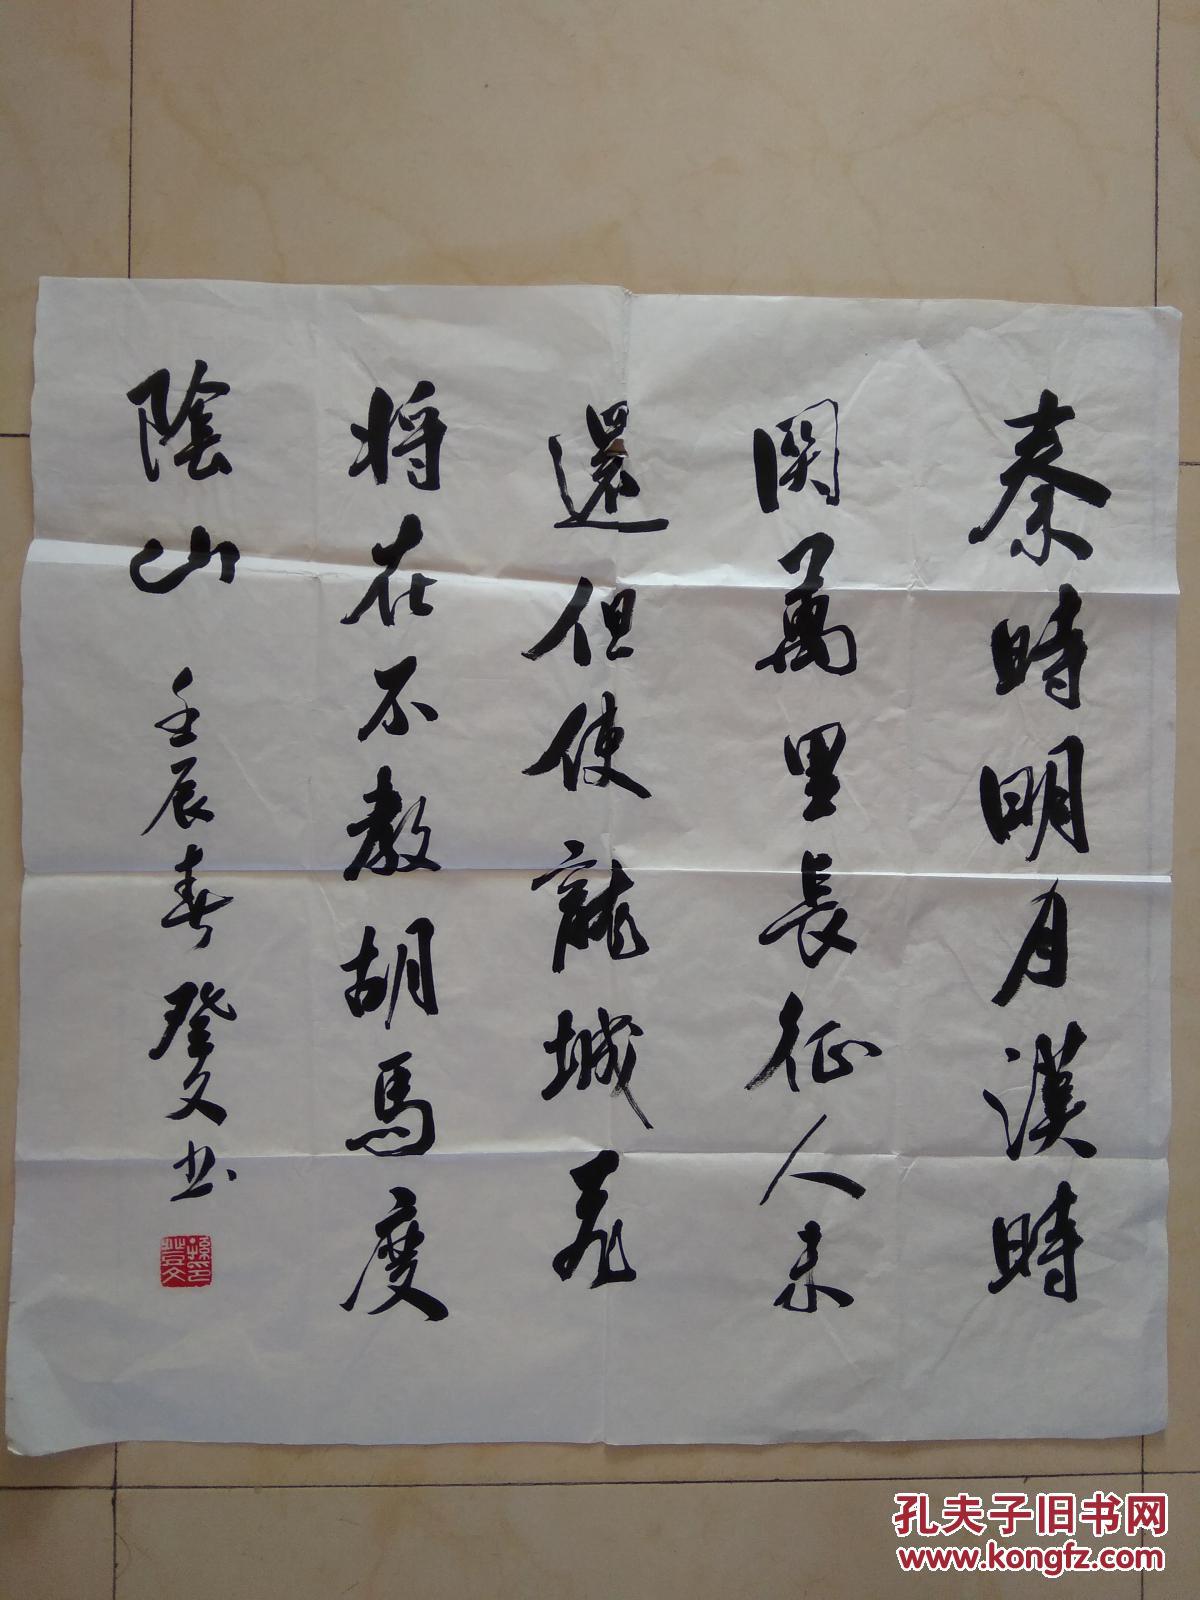 秦時明月漢時
関萬里長征人未
還但使龍城飛
将在不教胡馬度
陰山
壬辰春登文书
孫登文印
孔夫子旧书网
www.kongfz.com